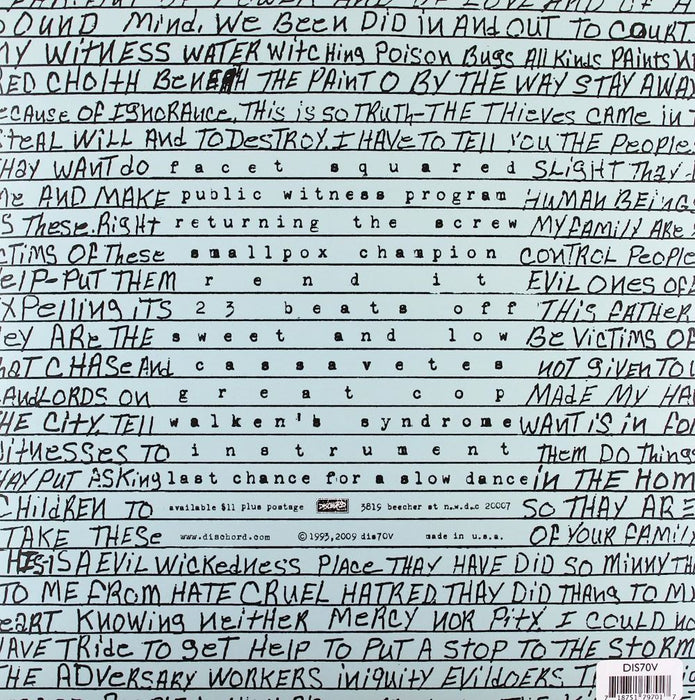 OF POWER AND OF LOVE AND OF A
SOUND MIND, WE BEEN DID IN AND OUT TO COURT
MY WITNESS WATER WITCHING POISON BUGS All KINDS PAINTS
RED CHOITH BENEATH THE PAINT O BY THE WAY STAY AWAY
BECAUSE OF IGNORANCE, THIS is SO TRUTH-THE THIEVES CAME IN
STEAL WILL AND TO DESTROY. I HAVE TO TELL YOU THE PEOPLE
THAY WANT do facet squared SLIGHT THAY
ME AND MAKE public witness program HUMAN BEINGS
THESE. RIGHT returning the screw MY FAMILY ARE
VICTIMS OF THESE smallpox champion CONTROL PEOPLE
HELP-PUT THEM rend it EVIL ONES OF
EXPELLING ITS 23 beats off THIS FATHER
THEY ARE THE sweet and low BE VICTIMS OF
CHASE AND cassavetes NOT GIVEN TO
LANDLORDS ON great cop MADE MY
THE CITY, TELL walken's syndrome WANT IS IN
WITNESSES TO instrument THEM DO THINGS
THAY PUT ASKING last chance for a slow dance IN THE HOM
CHILDREN TO available $11 plus postage DISCHORD 3819 beecher st n.w.d.c 20007 SO THAY ARE
TAKE THESE www.dischord.com ©1993, 2009 dis70V made in u.s.a. OF YOUR FAMILY
THIS IS A EVIL WICKEDNESS PLACE THAY HAVE DID SO MINNY
TO ME FROM HATE CRUEL HATRED THAY DID THANG TO
HEART KNOWING NEITHER MERCY NOR PITY. I COULD
HAVE TRIDE TO GET HELP TO PUT A STOP TO THE STORM
THE ADVERSARY WORKERS INIQUITY EVILDOERS.
DIS70V
7 18751 79701 7